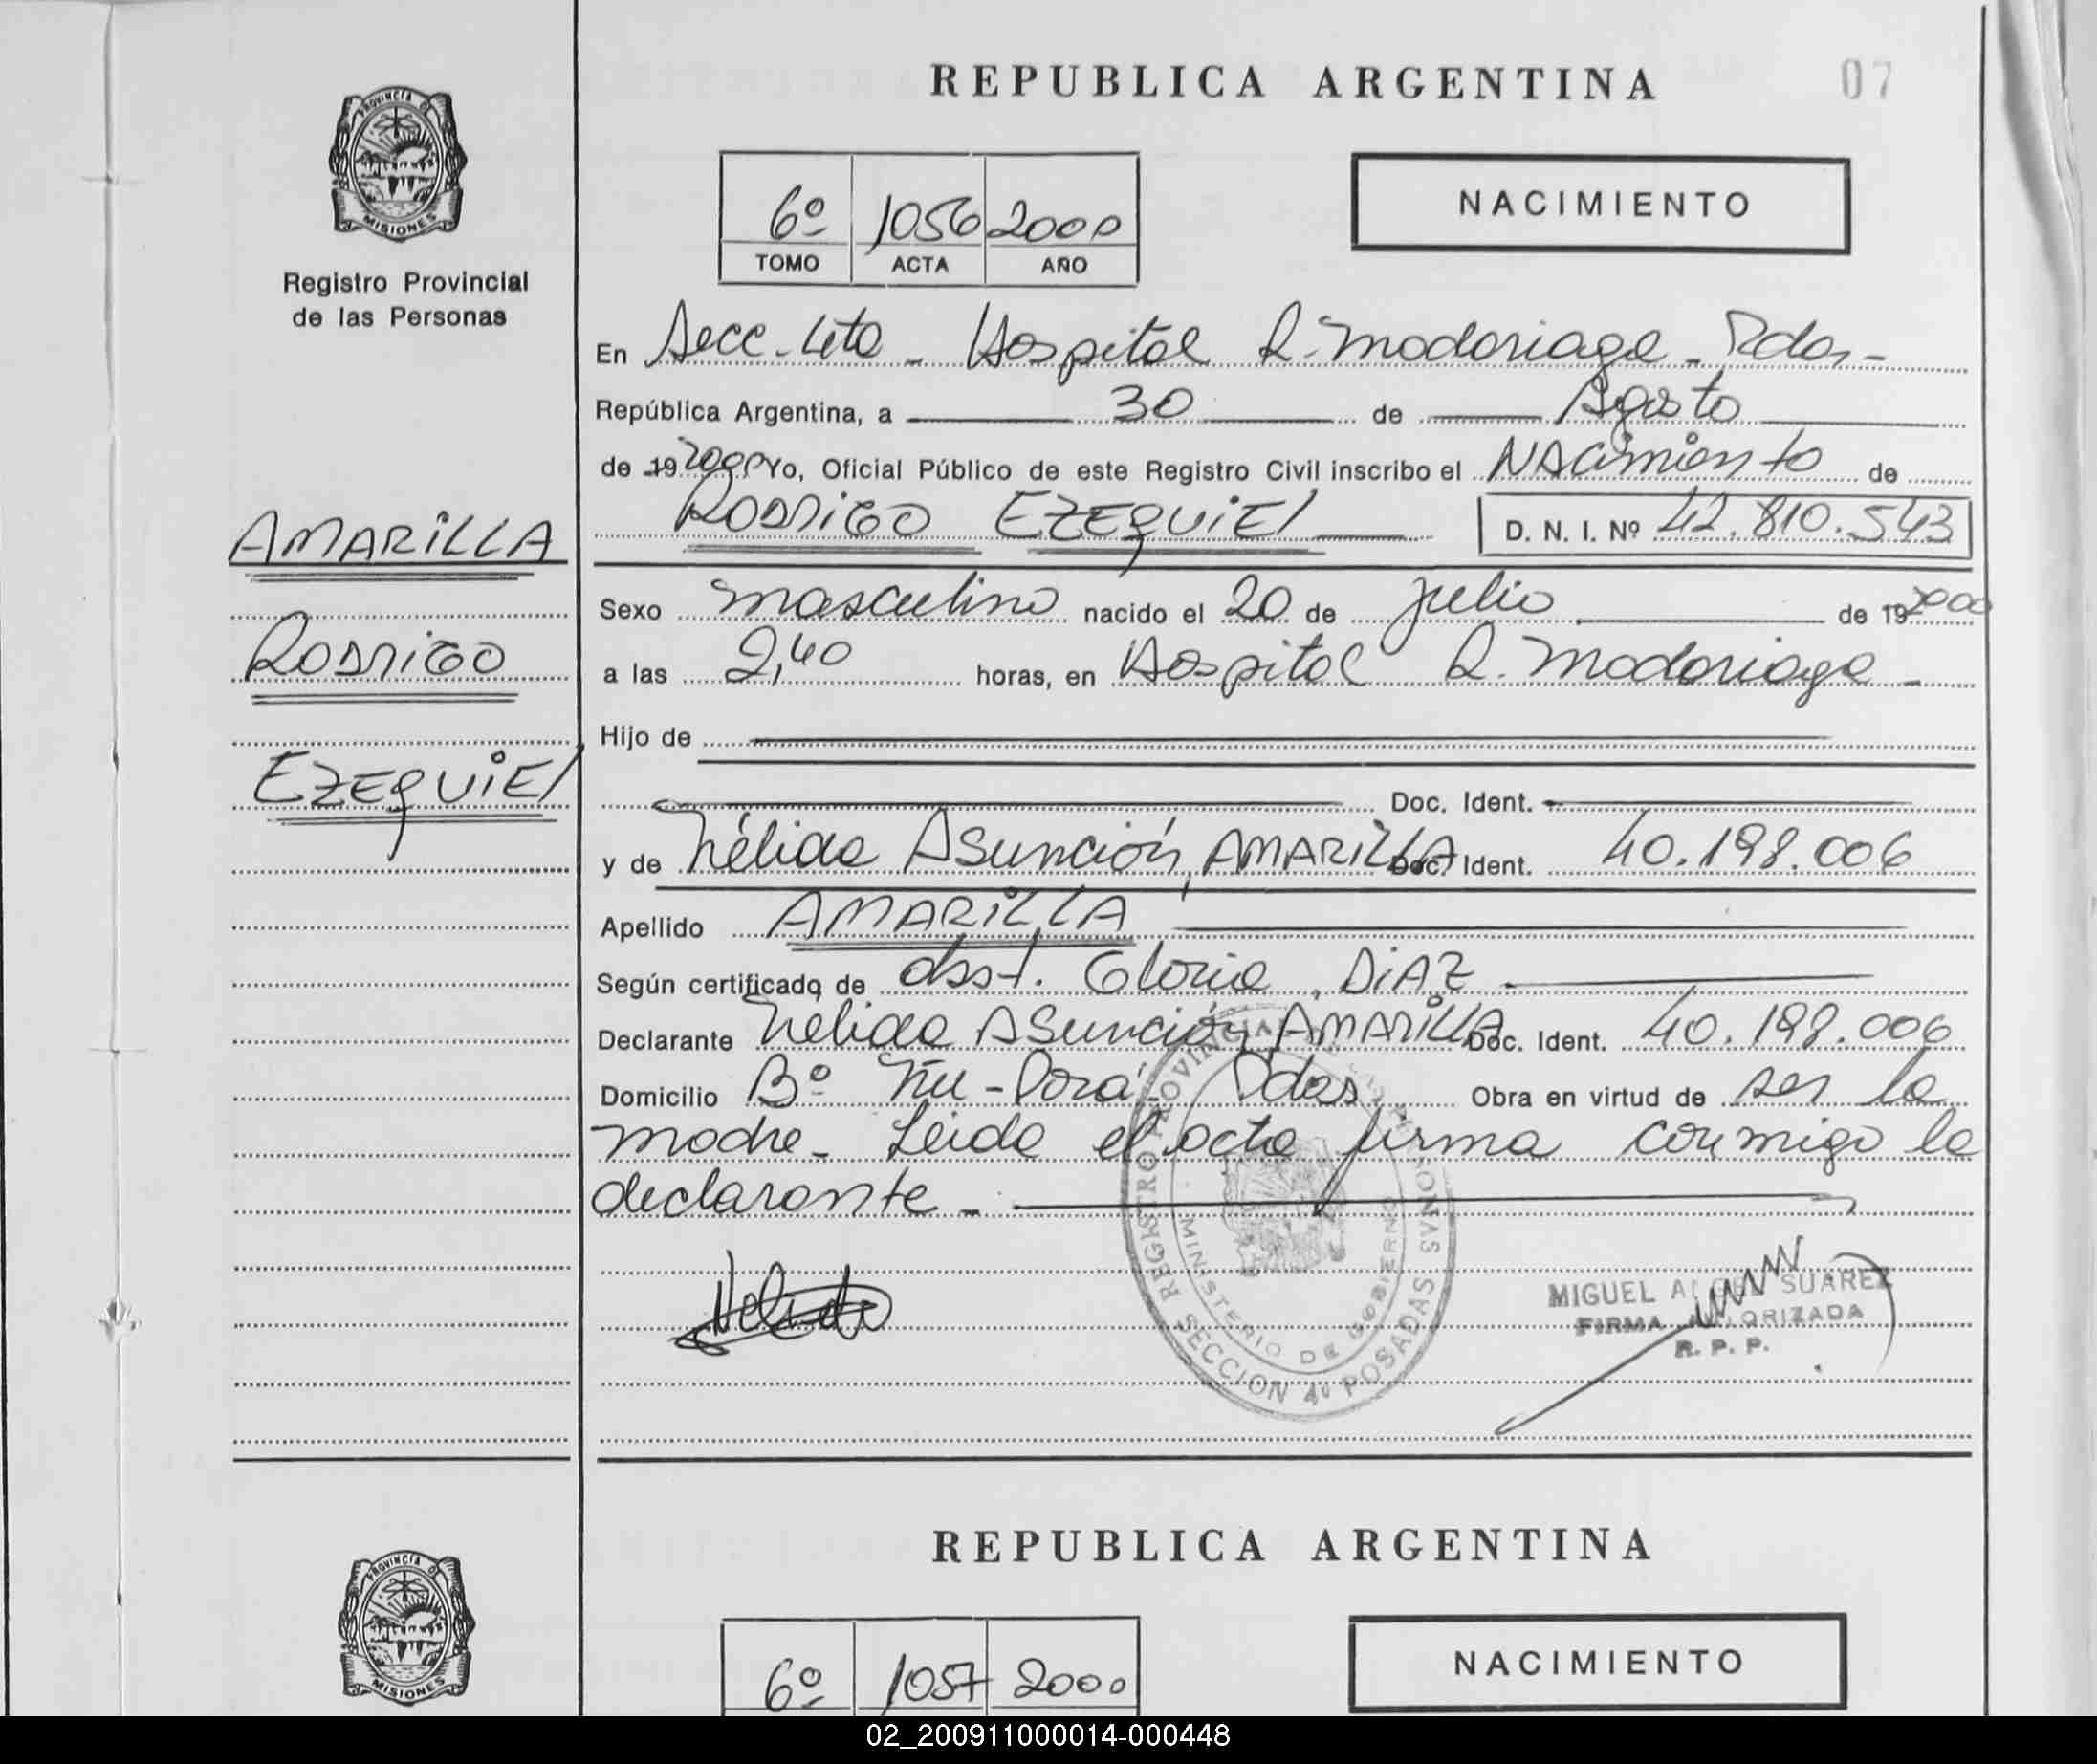 REPUBLICA ARGENTINA
07
PROVINCIA DE
MISIONES
Registro Provincial
de las Personas
6º 1056 2000
TOMO ACTA AÑO
NACIMIENTO
En Secc. 4ta - Hospital R. Madariaga - Pdas -
República Argentina, a 30 de Agosto
de 19 2000 Yo, Oficial Público de este Registro Civil inscribo el NACimiento de
RODRIGO EZEQUIEL D. N. I. Nº 42.810.543
AMARILLA
RODRIGO
EZEQUIEL
Sexo masculino nacido el 20 de Julio de 19 2000
a las 2,40 horas, en Hospital R. Madariaga -
Hijo de
Doc. Ident.
y de Nélida Asunción, AMARILLA Doc. Ident. 40.198.006
Apellido AMARILLA
Según certificado de obst. Gloria, DIAZ
Declarante Nelida Asunción, AMARILLA Doc. Ident. 40.198.006
Domicilio Bº Ñu-Porá - Pdas Obra en virtud de ser la
madre - Leida el acta firma conmigo la
declarante -
Nelida
REGISTRO PROVINCIAL DE LAS PERSONAS
MINISTERIO DE GOBIERNO
SECCION 4º POSADAS
MIGUEL ANGEL SUAREZ
FIRMA AUTORIZADA
R. P. P.
REPUBLICA ARGENTINA
PROVINCIA DE
MISIONES
6º 1057 2000
NACIMIENTO
02_200911000014-000448